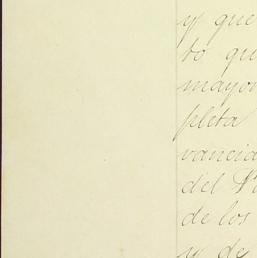 y que
to qu
mayor
pleta
vancia
del
de los
y de